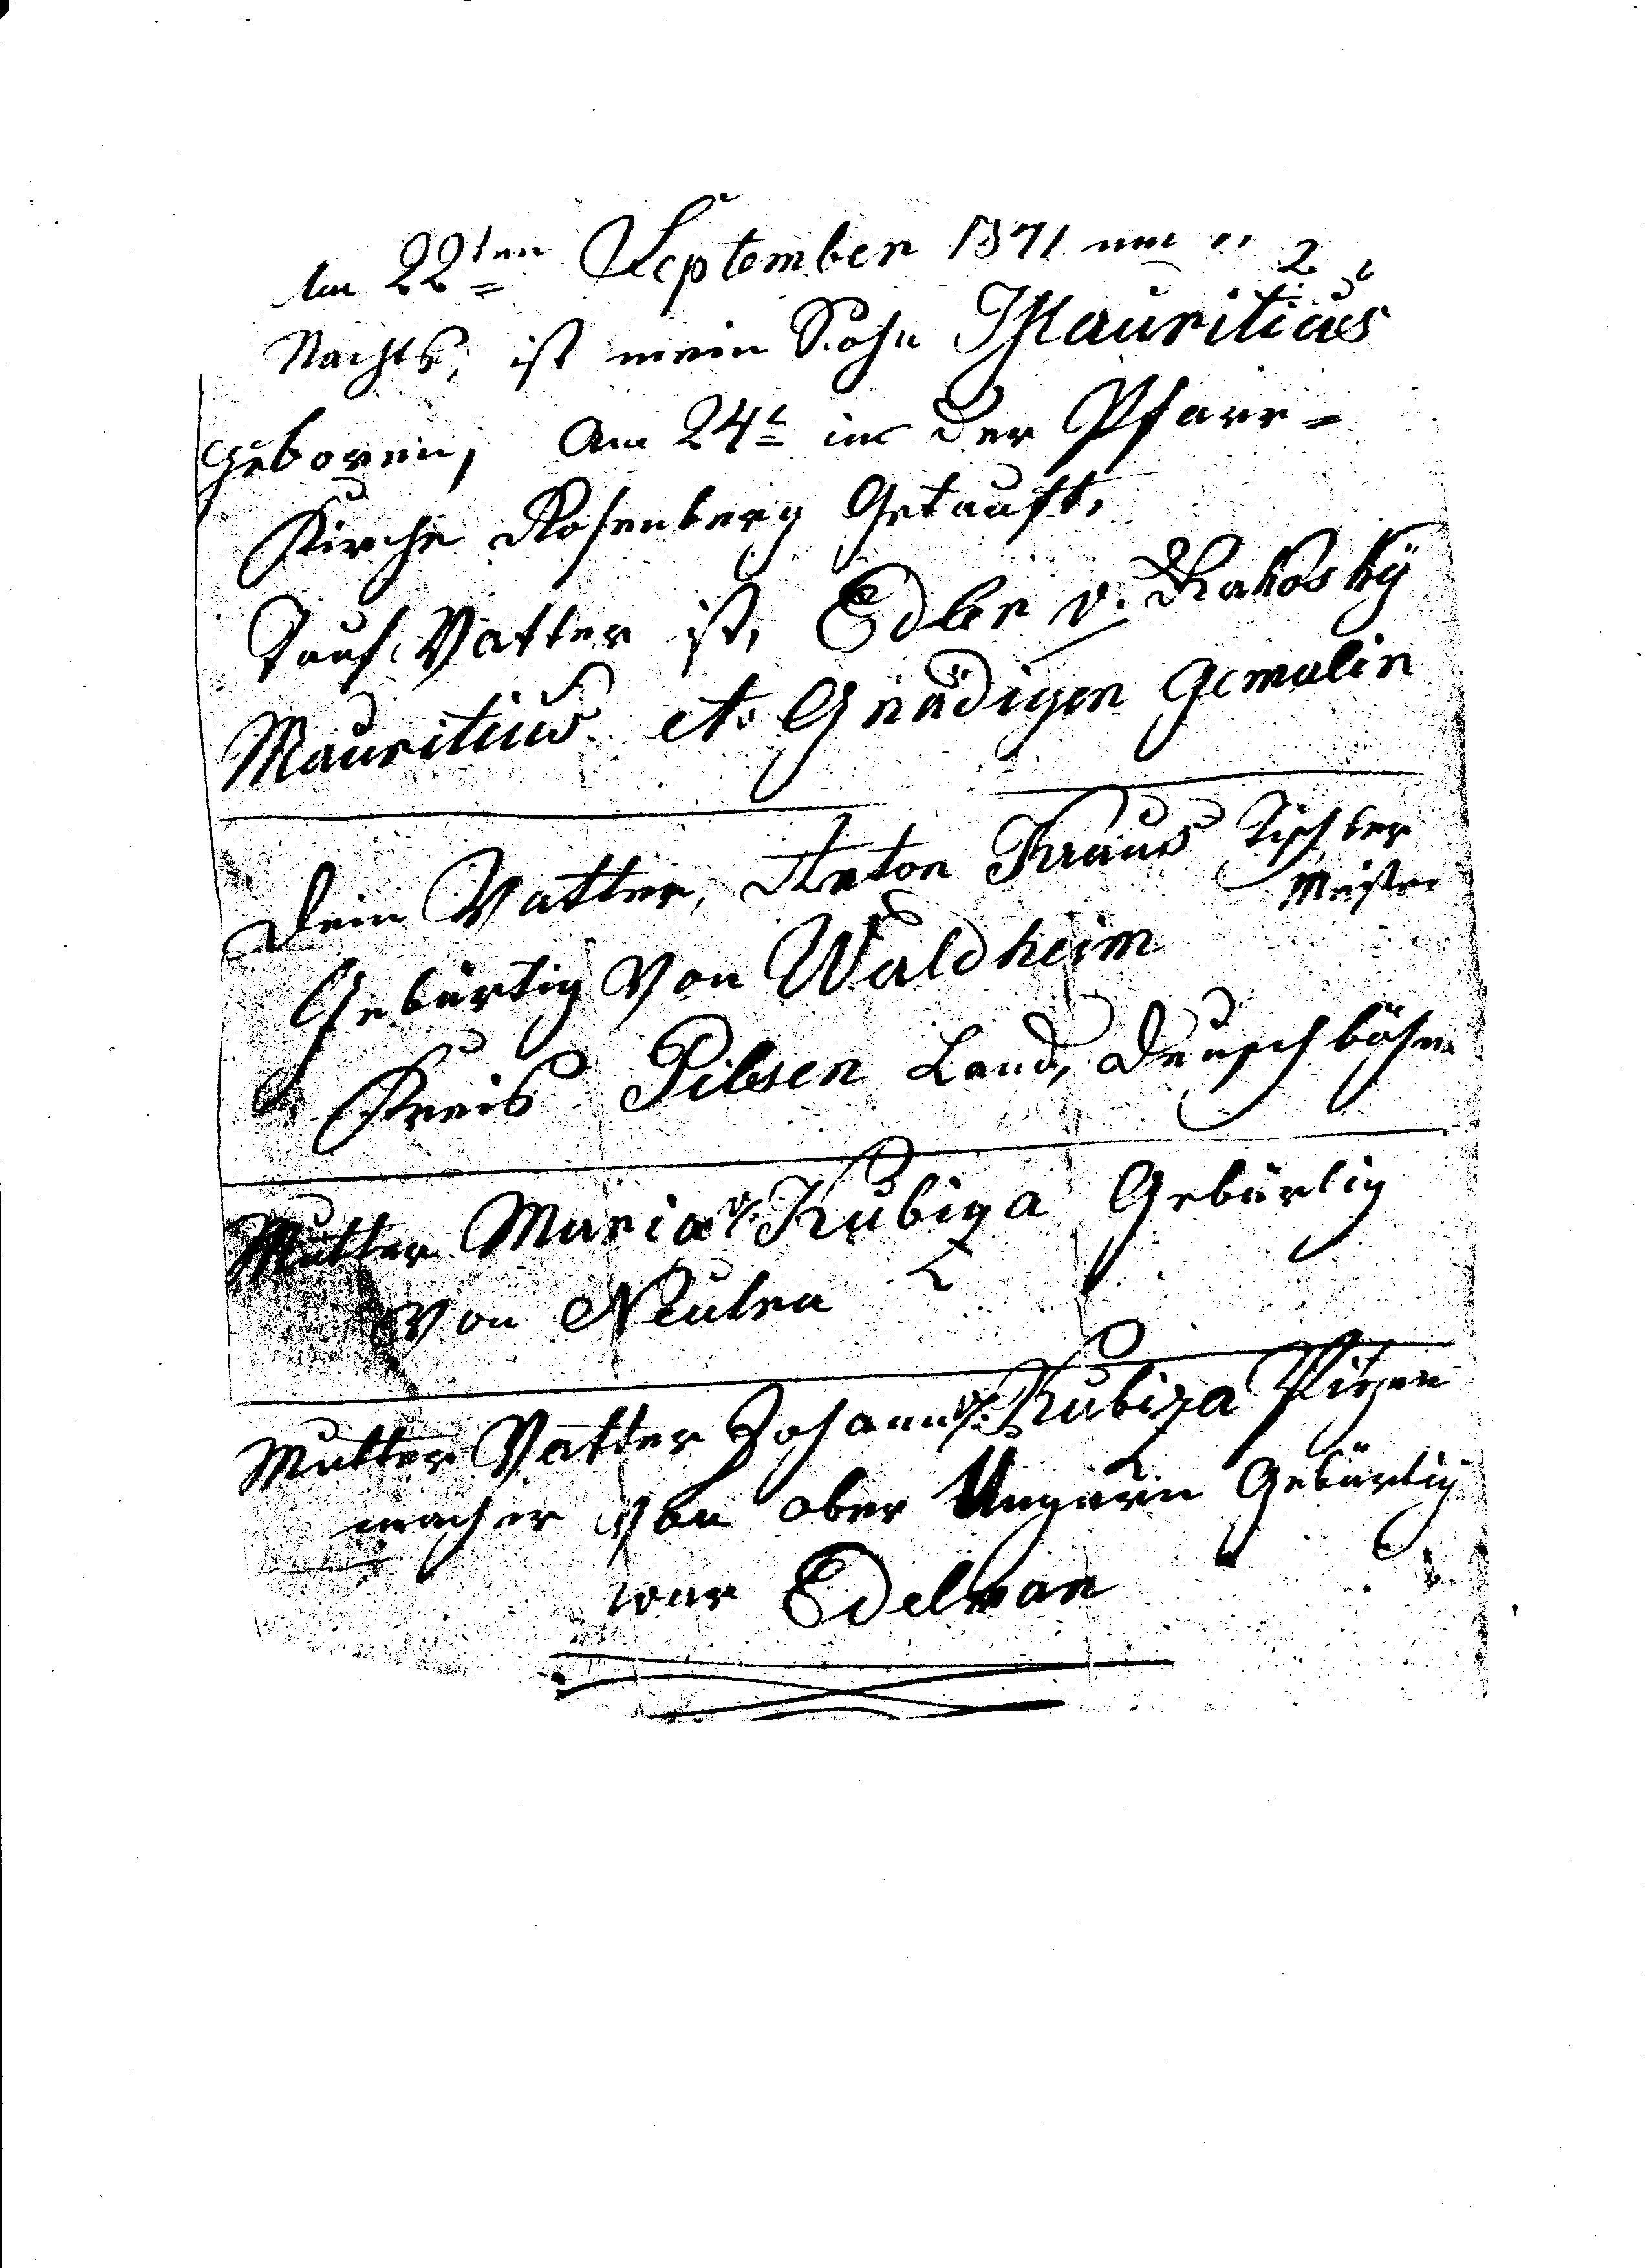 Am 22ten September 1871 um
Nachts, ist mein Sohn Mauritius
geboren, Am 24t in der Pfarr=
Kirche Rosenberg Getauft,
Tauf Vatter ist, Edler v. Rakosky
Mauritius et. Gnädigen Gemalin
Dein Vatter, Anton Kraus Tischler
Meister
Gebürtig Von Waldheim
Kreis Pilsen Land, Deuschböhm
Mutter Maria v. Kubiza Gebürtig
Von Neutra
Mutter Vatter Johann v. Kubiza
macher Von ober Ungarn Gebürtig
war Edelman